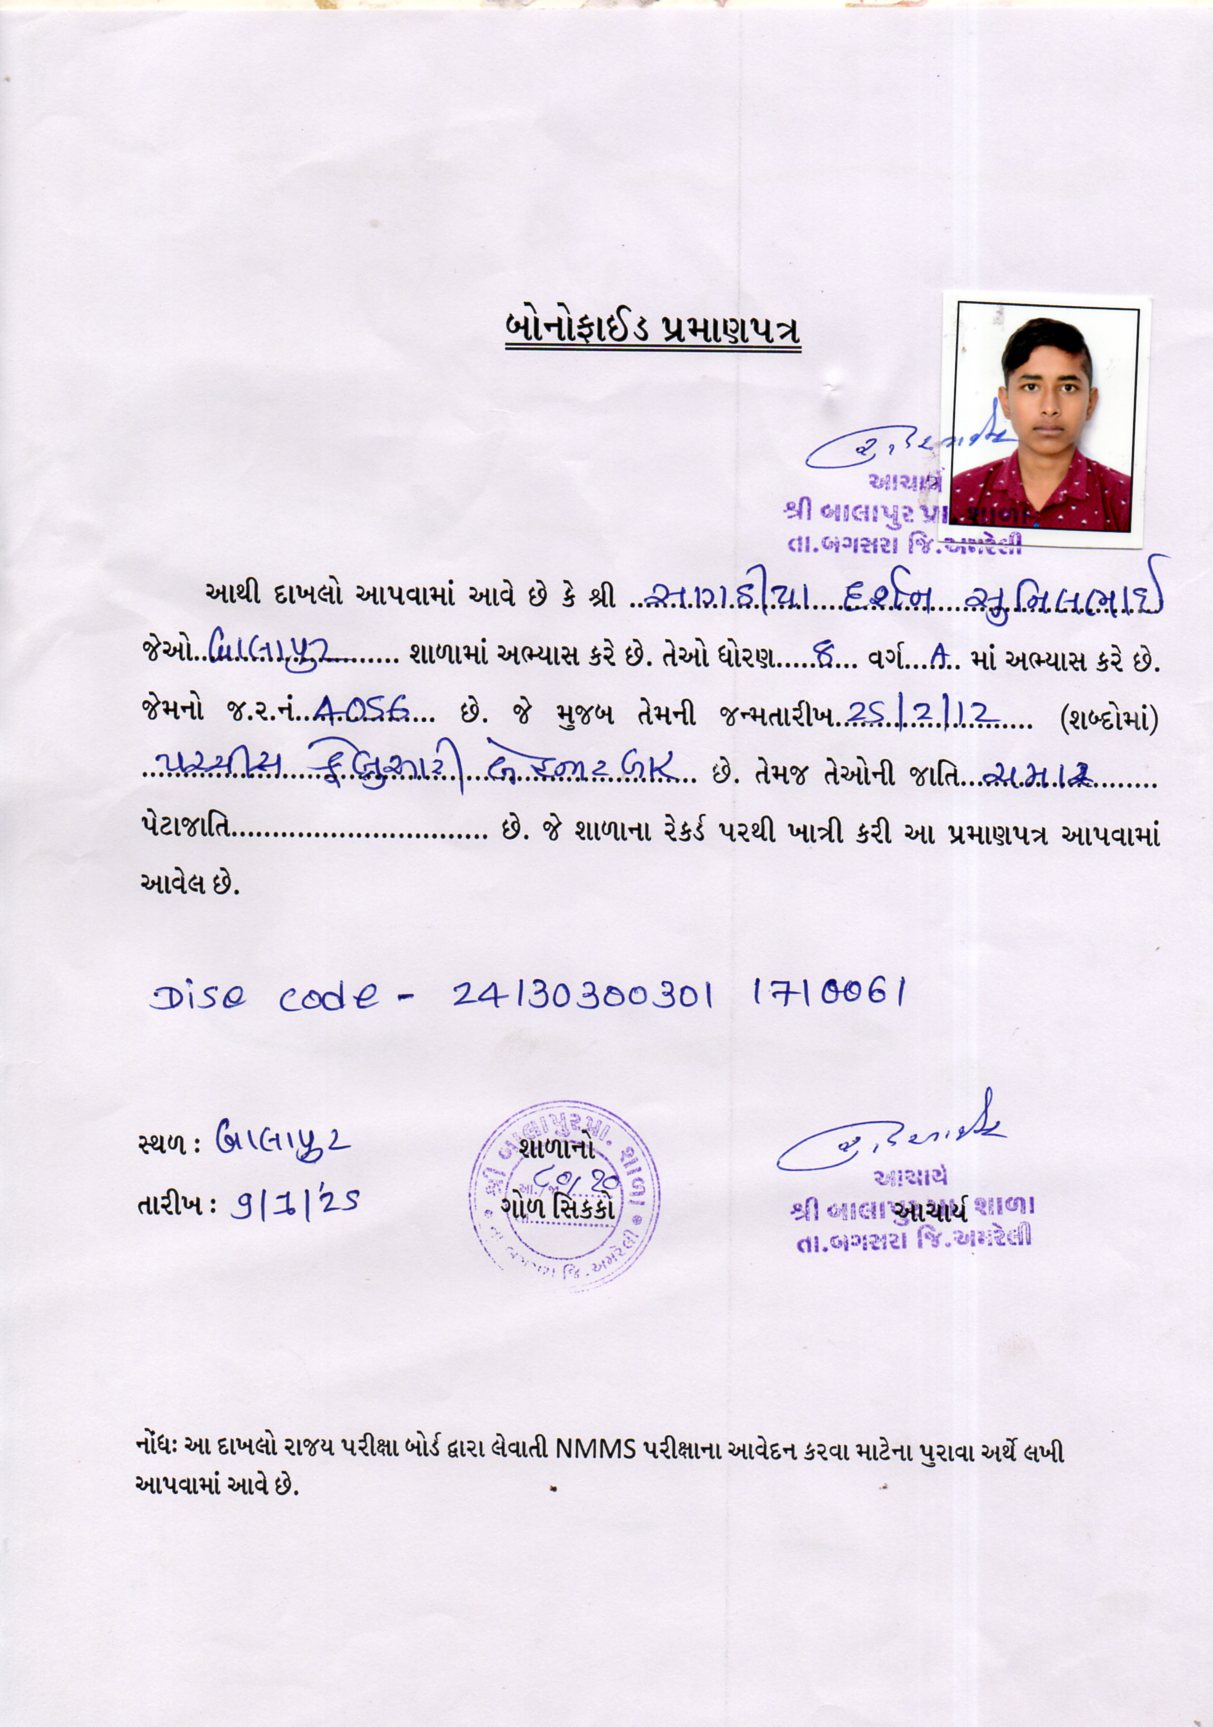 બોનોફાઈડ પ્રમાણપત્ર
આચાર્ય
શ્રી બાલાપુર પ્રા. શાળા
તા.બગસરા જિ.અમરેલી
આથી દાખલો આપવામાં આવે છે કે શ્રી ..સાગઠીયા દર્શન સુનિલભાઈ
જેઓ..બાલાપુર.......... શાળામાં અભ્યાસ કરે છે. તેઓ ધોરણ.....8... વર્ગ...A.. માં અભ્યાસ કરે છે.
જેમનો જ.ર.નં..4056... છે. જે મુજબ તેમની જન્મતારીખ..25/2/12..... (શબ્દોમાં)
પચ્ચીસ ફેબ્રુઆરી બે હજાર બાર .. છે. તેમજ તેઓની જાતિ.............
પેટાજાતિ............................... છે. જે શાળાના રેકર્ડ પરથી ખાત્રી કરી આ પ્રમાણપત્ર આપવામાં
આવેલ છે.
Dise code - 24130300301 1710061
સ્થળ : બાલાપુર
તારીખ : 9/7/'25
શ્રી બાલાપુર પ્રા. શાળા
શાળાનો
ગોળ સિક્કો
તા. બગસરા જિ. અમરેલી
આચાર્ય
શ્રી બાલાપુર પ્રા. શાળા
આચાર્ય
તા.બગસરા જિ.અમરેલી
નોંધઃ આ દાખલો રાજય પરીક્ષા બોર્ડ દ્વારા લેવાતી NMMS પરીક્ષાના આવેદન કરવા માટેના પુરાવા અર્થે લખી
આપવામાં આવે છે.